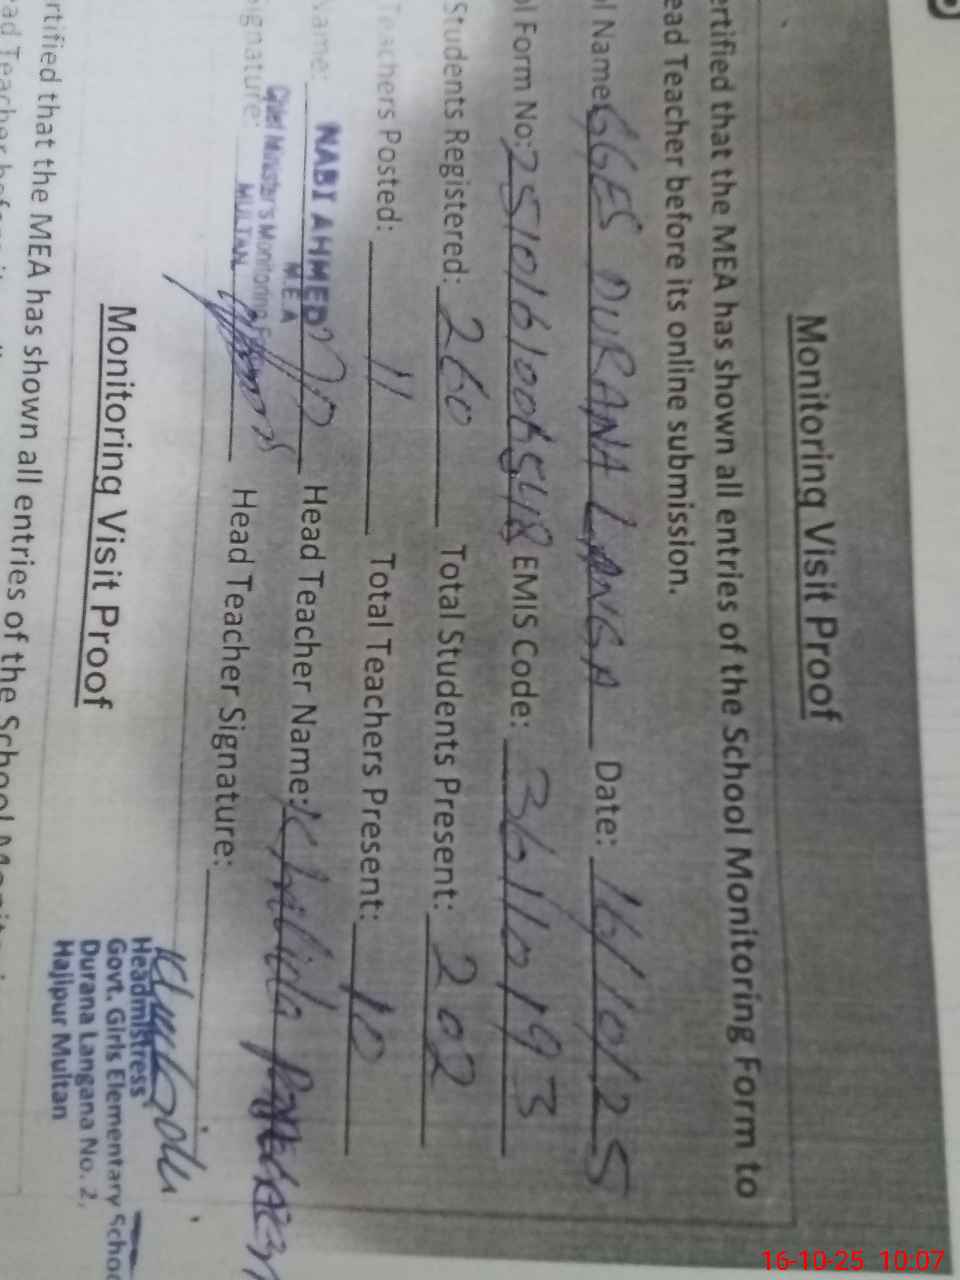 Monitoring Visit Proof
ertified that the MEA has shown all entries of the School Monitoring Form to
ead Teacher before its online submission.
l Name: GGES DURANA LANGA Date: 16/10/25
ol Form No: EMIS Code: 36110193
Students Registered: 260 Total Students Present: 202
Teachers Posted: 11 Total Teachers Present: 10
Name: NABI AHMED Head Teacher Name: Khalida
M.E.A
Chief Minister's Monitoring F
ignature: MULTAN Head Teacher Signature:
Headmistress
Govt. Girls Elementary Schoo
Durana Langana No. 2,
Hajipur Multan
Monitoring Visit Proof
rtified that the MEA has shown all entries of the School Monitorin
ead Teacher before its
16-10-25 10:07